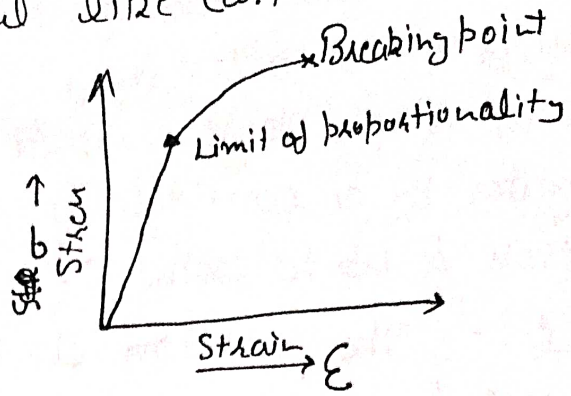 Breaking point
Limit of proportionality
σ →
Stress
Strain
ε